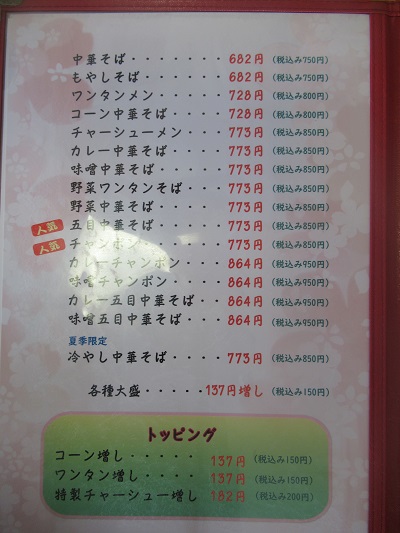 中華そば・・・・・・・682円（税込み750円）
もやしそば・・・・・・682円（税込み750円）
ワンタンメン・・・・・728円（税込み800円）
コーン中華そば・・・・728円（税込み800円）
チャーシューメン・・・773円（税込み850円）
カレー中華そば・・・・773円（税込み850円）
味噌中華そば・・・・・773円（税込み850円）
野菜ワンタンそば・・・773円（税込み850円）
野菜中華そば・・・・・773円（税込み850円）
人気 五目中華そば・・・・・773円（税込み850円）
人気 チャンポン・・・・・・773円（税込み850円）
カレーチャンポン・・・864円（税込み950円）
味噌チャンポン・・・・864円（税込み950円）
カレー五目中華そば・・864円（税込み950円）
味噌五目中華そば・・・864円（税込み950円）
夏季限定
冷やし中華そば・・・・773円（税込み850円）
各種大盛・・・・・137円増し（税込み150円）
トッピング
コーン増し・・・・・137円（税込み150円）
ワンタン増し・・・・137円（税込み150円）
特製チャーシュー増し 182円（税込み200円）